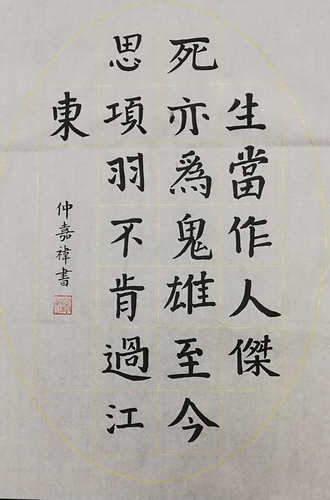 生當作人傑
死亦為鬼雄至今
思項羽不肯過江
東
仲嘉禕書